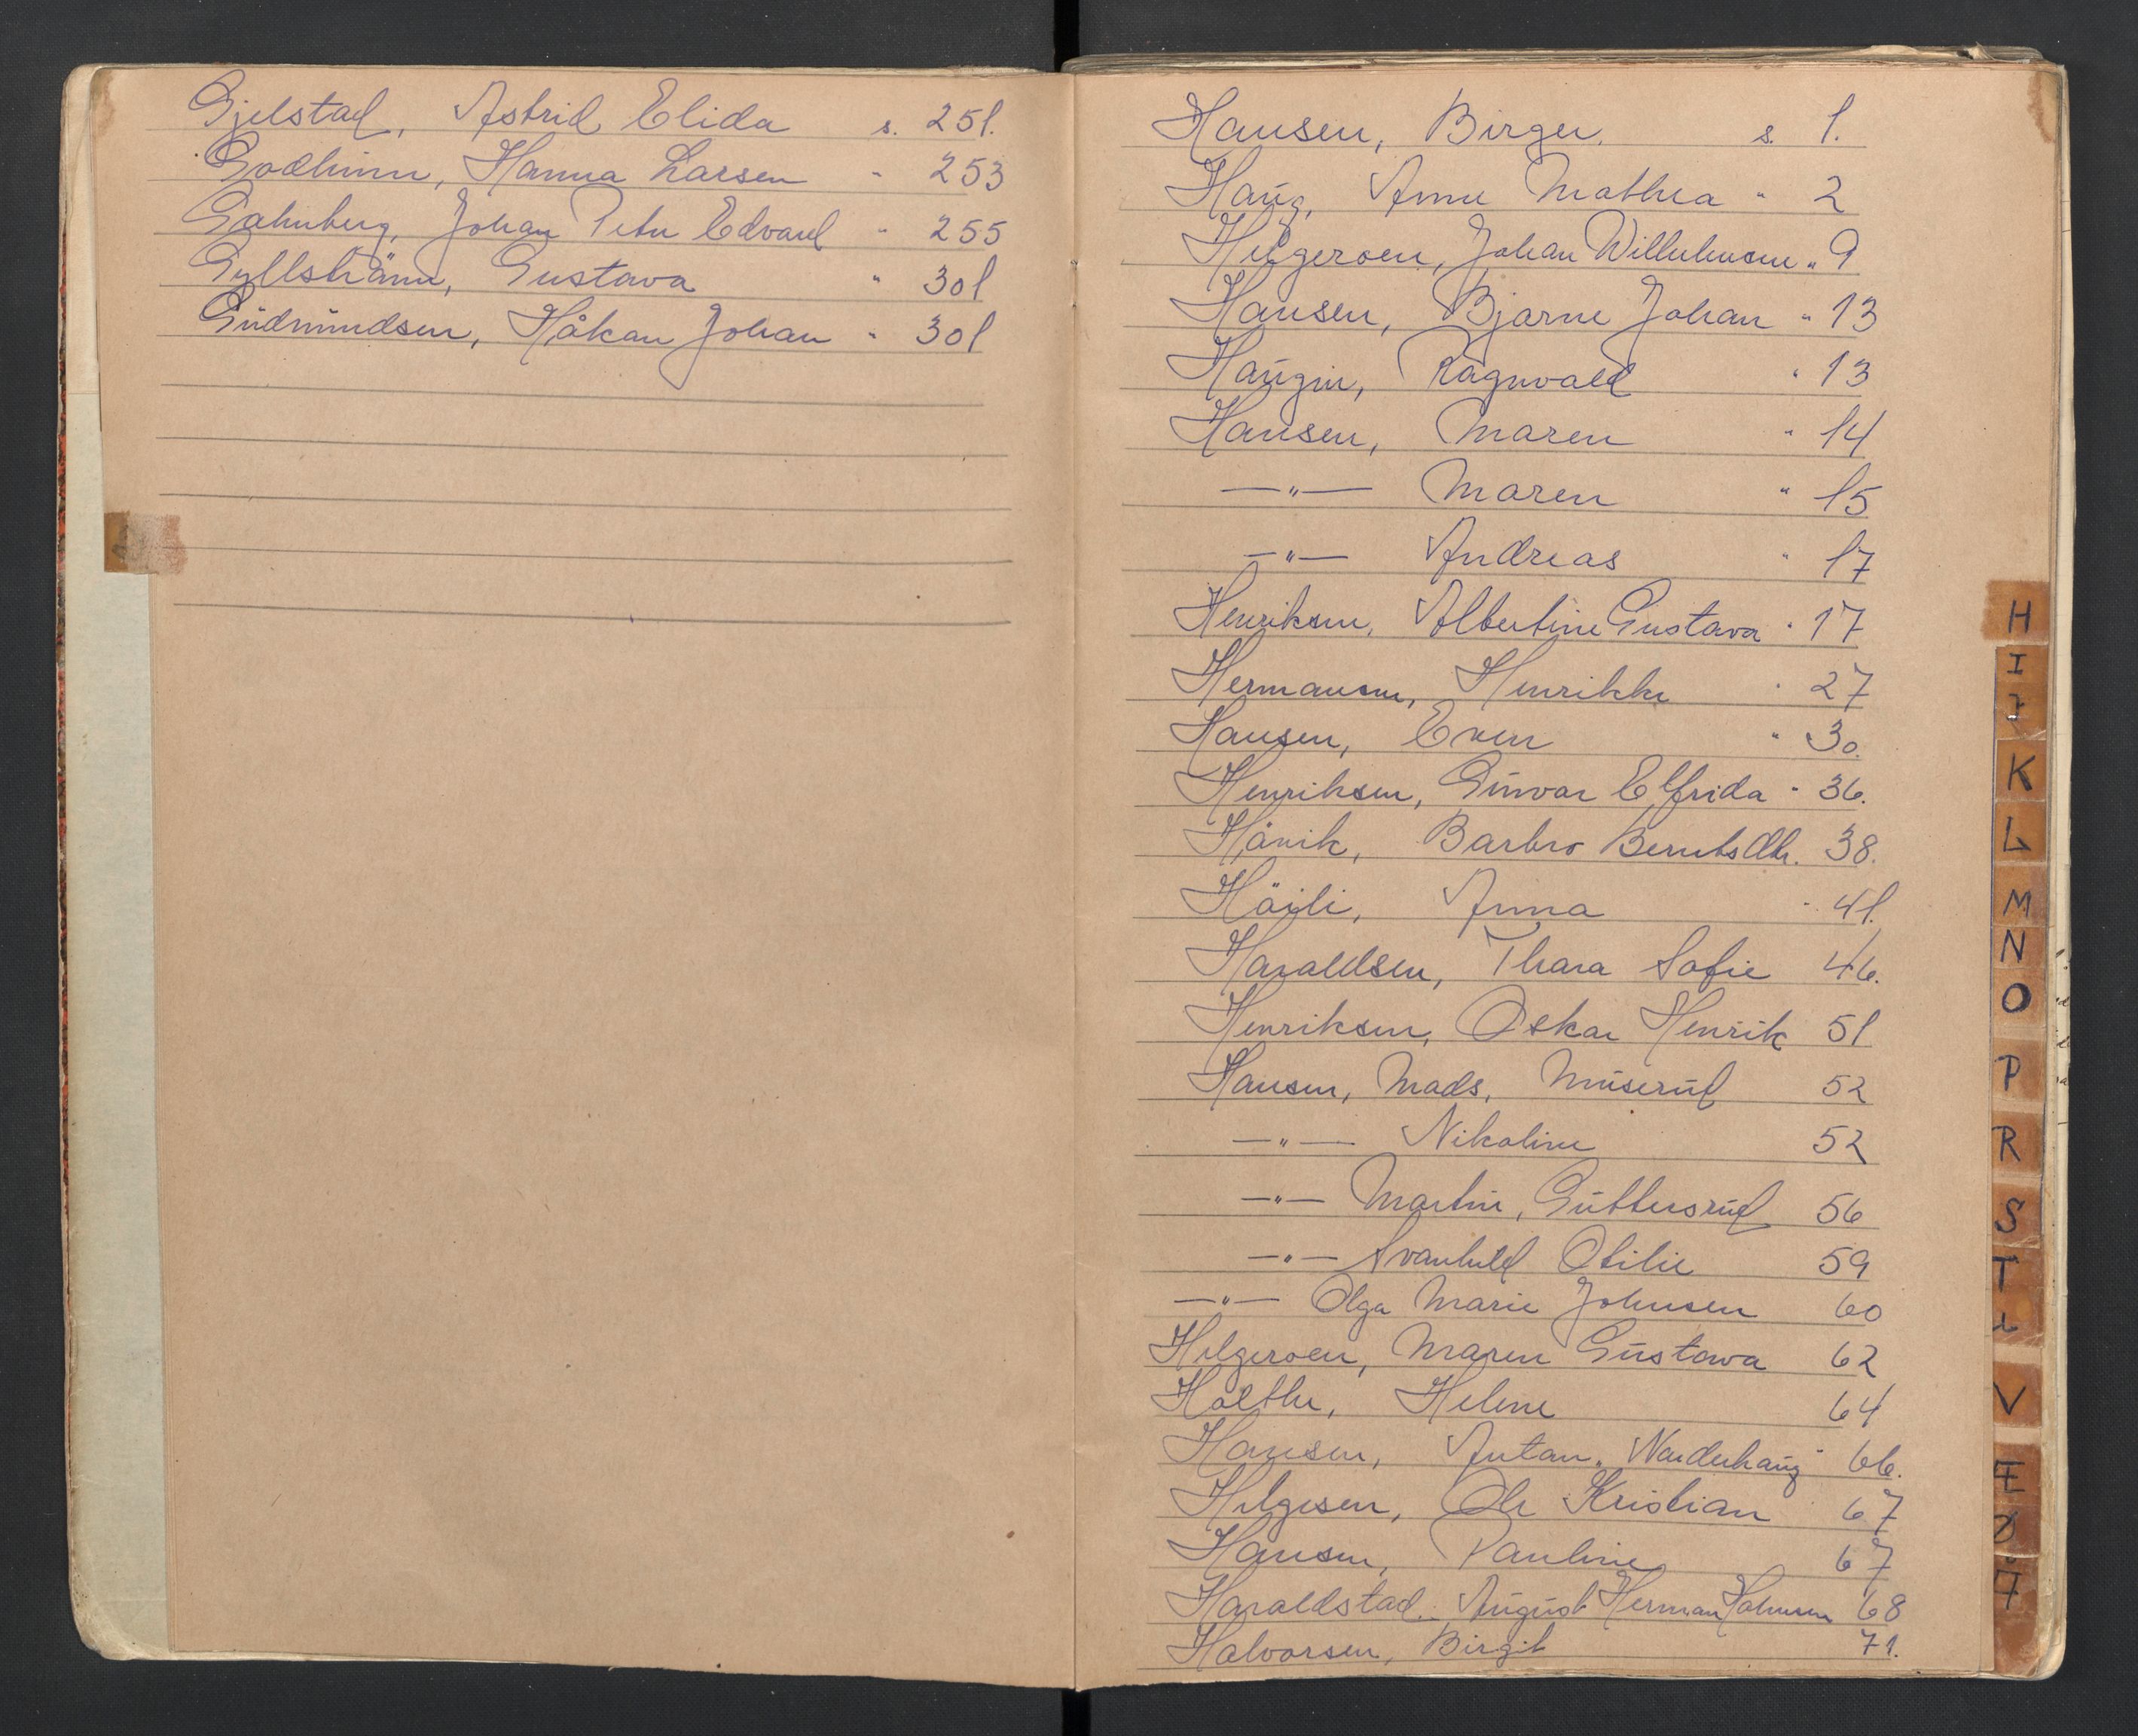 Gjelstad, Astrid Elida s. 251.
Godhinn, Hanna Larsen " 253
Galmberg, Johan Peter Edvard " 255
Gyllstränn, Gustava " 301
Gudmundsen, Håkan Johan " 301
Hansen, Birger. s. 1.
Haug, Anne Mathea " 2
Helgeroen, Johan Willielmsen " 9
Hansen, Bjarne Johan " 13
Haugin, Ragnvald " 13
Hansen, Maren " 14
—"— Maren " 15
—"— Andreas " 17
Henriksen, Albertine Gustava " 17
Hermansen, Henrikke " 27
Hansen, Even " 30.
Henriksen, Gunvor Elfrida " 36.
Håvik, Barbro Berntsdtr. 38.
Höili, Anna " 41.
Haraldsen, Thara Sofie 46.
Henriksen, Oskar Henrik 51
Hansen, Mads, Muserud 52
—"— Nikoline 52
—"— Martin, Guttersrud 56
—"— Svanhild Otilie 59
—"— Olga Marie Johnsen 60
Helgeroen, Maren Gustava 62
Holthe, Helene 64
Hansen, Anton, Norderhaug " 66.
Helgesen, Ole Kristian 67
Hansen, Pauline 67
Haraldstad, August Herman 68
Halvorsen, Birgit 71.
H
I
J
K
L
M
N
O
P
R
S
T
V
Æ
Ø